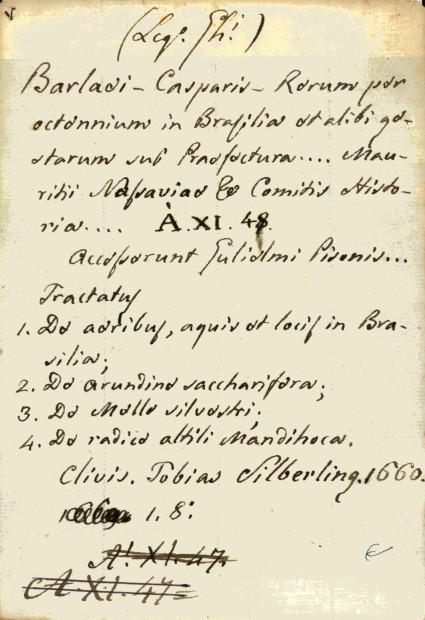 (Leg.° Ghi.)
Barlaei - Casparis - Rerum per
octennium in Brasilia et alibi ge-
starum sub Praefectura .... Mau-
ritii Nassaviae &c Comitis Histo-
ria .... A. XI. 48.
Accesserunt Gulielmi Pisonis ...
Tractatus
1. De aeribus, aquis et locis in Bra-
silia;
2. De arundine saccharifera;
3. De Melle silvestri;
4. De radice altili Mandihoca.
Clivis. Tobias Silberling. 1660.
1. 8.°
A. XI. 47.
A. XI. 47.